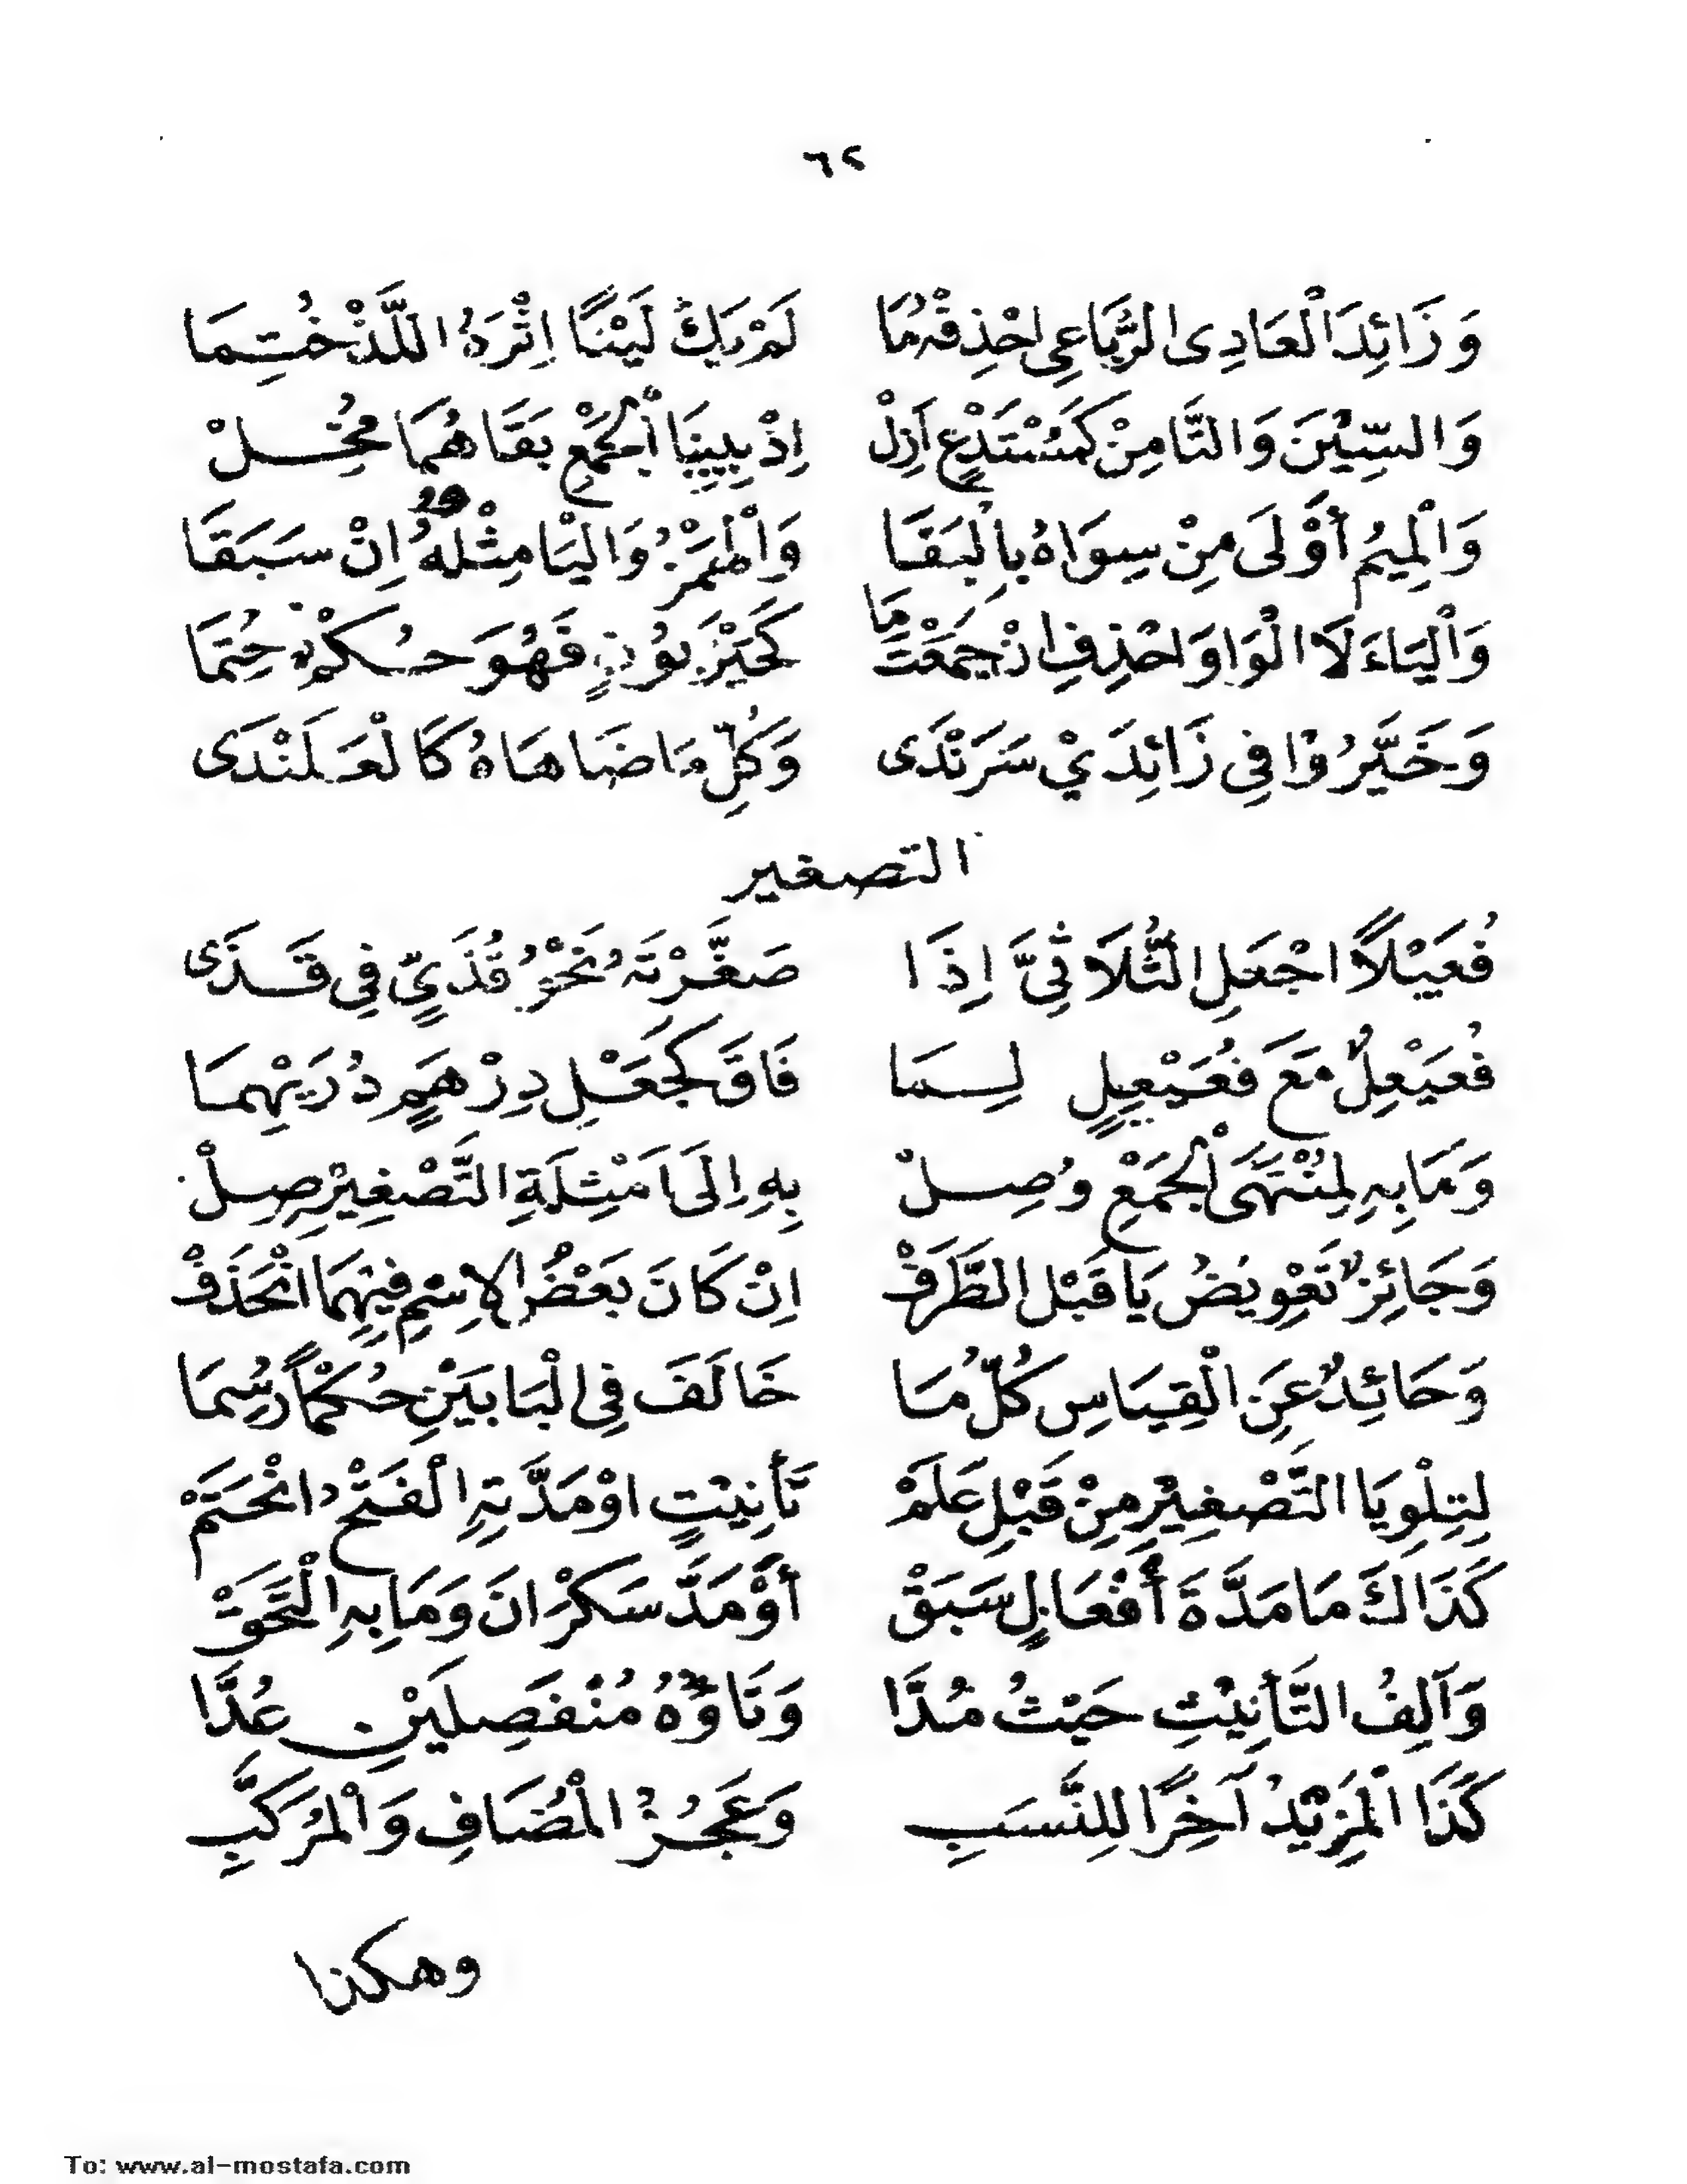 ٦٢
وَزَائِدَ الْعَادِى الرُّبَاعِى احْذِفْهُ مَا لَمْ يَكُ لَيْنًا اِثْرَهُ اللَّذْ خُتِمَا
وَالسِّيْنَ وَالتَّا مِنْ كَمُسْتَدْعٍ أَزِلْ اِذْ بِبِنَا الْجَمْعِ بَقَاهُمَا مُخِلْ
وَالْمِيمُ أَوْلَى مِنْ سِوَاهُ بِالْبَقَا وَالْهَمْزُ وَالْيَا مِثْلُهُ اِنْ سَبَقَا
وَالْيَاءَ لَا الْوَاوَ احْذِفِ اِنْ جَمَعْتَ مَا كَحَيْزَبُوْنٍ فَهْوَ حُكْمٌ حُتِمَا
وَخَيَّرُوْا فِى زَائِدَيْ سَرَنْدَى وَكُلِّ مَا ضَاهَاهُ كَالْعَلَنْدَى
التصغير
فُعَيْلًا اجْعَلِ الثُّلَاثِىَّ اِذَا صَغَّرْتَهُ نَحْوُ قُذَيٍّ فِى قَذَى
فُعَيْعِلٌ مَعَ فُعَيْعِيلٍ لِمَا فَاقَ كَجَعْلِ دِرْهَمٍ دُرَيْهِمَا
وَمَا بِهِ لِمُنْتَهَى الْجَمْعِ وُصِلْ بِهِ اِلَى اَمْثِلَةِ التَّصْغِيْرِ صِلْ
وَجَائِزٌ تَعْوِيضُ يَا قَبْلَ الطَّرَفْ اِنْ كَانَ بَعْضُ الاِسْمِ فِيْهِمَا انْحَذَفْ
وَحَائِدٌ عَنِ الْقِيَاسِ كُلُّ مَا خَالَفَ فِى الْبَابَيْنِ حُكْمًا رُسِمَا
لِتِلْوِيَا التَّصْغِيْرِ مِنْ قَبْلِ عَلَمْ تَأْنِيْثٍ اوْ مَدَّتِهِ الْفَتْحُ انْحَتَمْ
كَذَاكَ مَا مَدَّةَ أَفْعَالٍ سَبَقْ أَوْ مَدَّ سَكْرَانَ وَمَا بِهِ الْتَحَقْ
وَآلِفُ التَّأْنِيْثِ حَيْثُ مُدَّا وَتَاؤُهُ مُنْفَصِلَيْنِ عُدَّا
كَذَا الْمَزِيْدُ آخِرًا لِلنَّسَبِ وَعَجُزُ الْمُضَافِ وَالْمُرَكَّبِ
وهكذا
To: www.al-mostafa.com